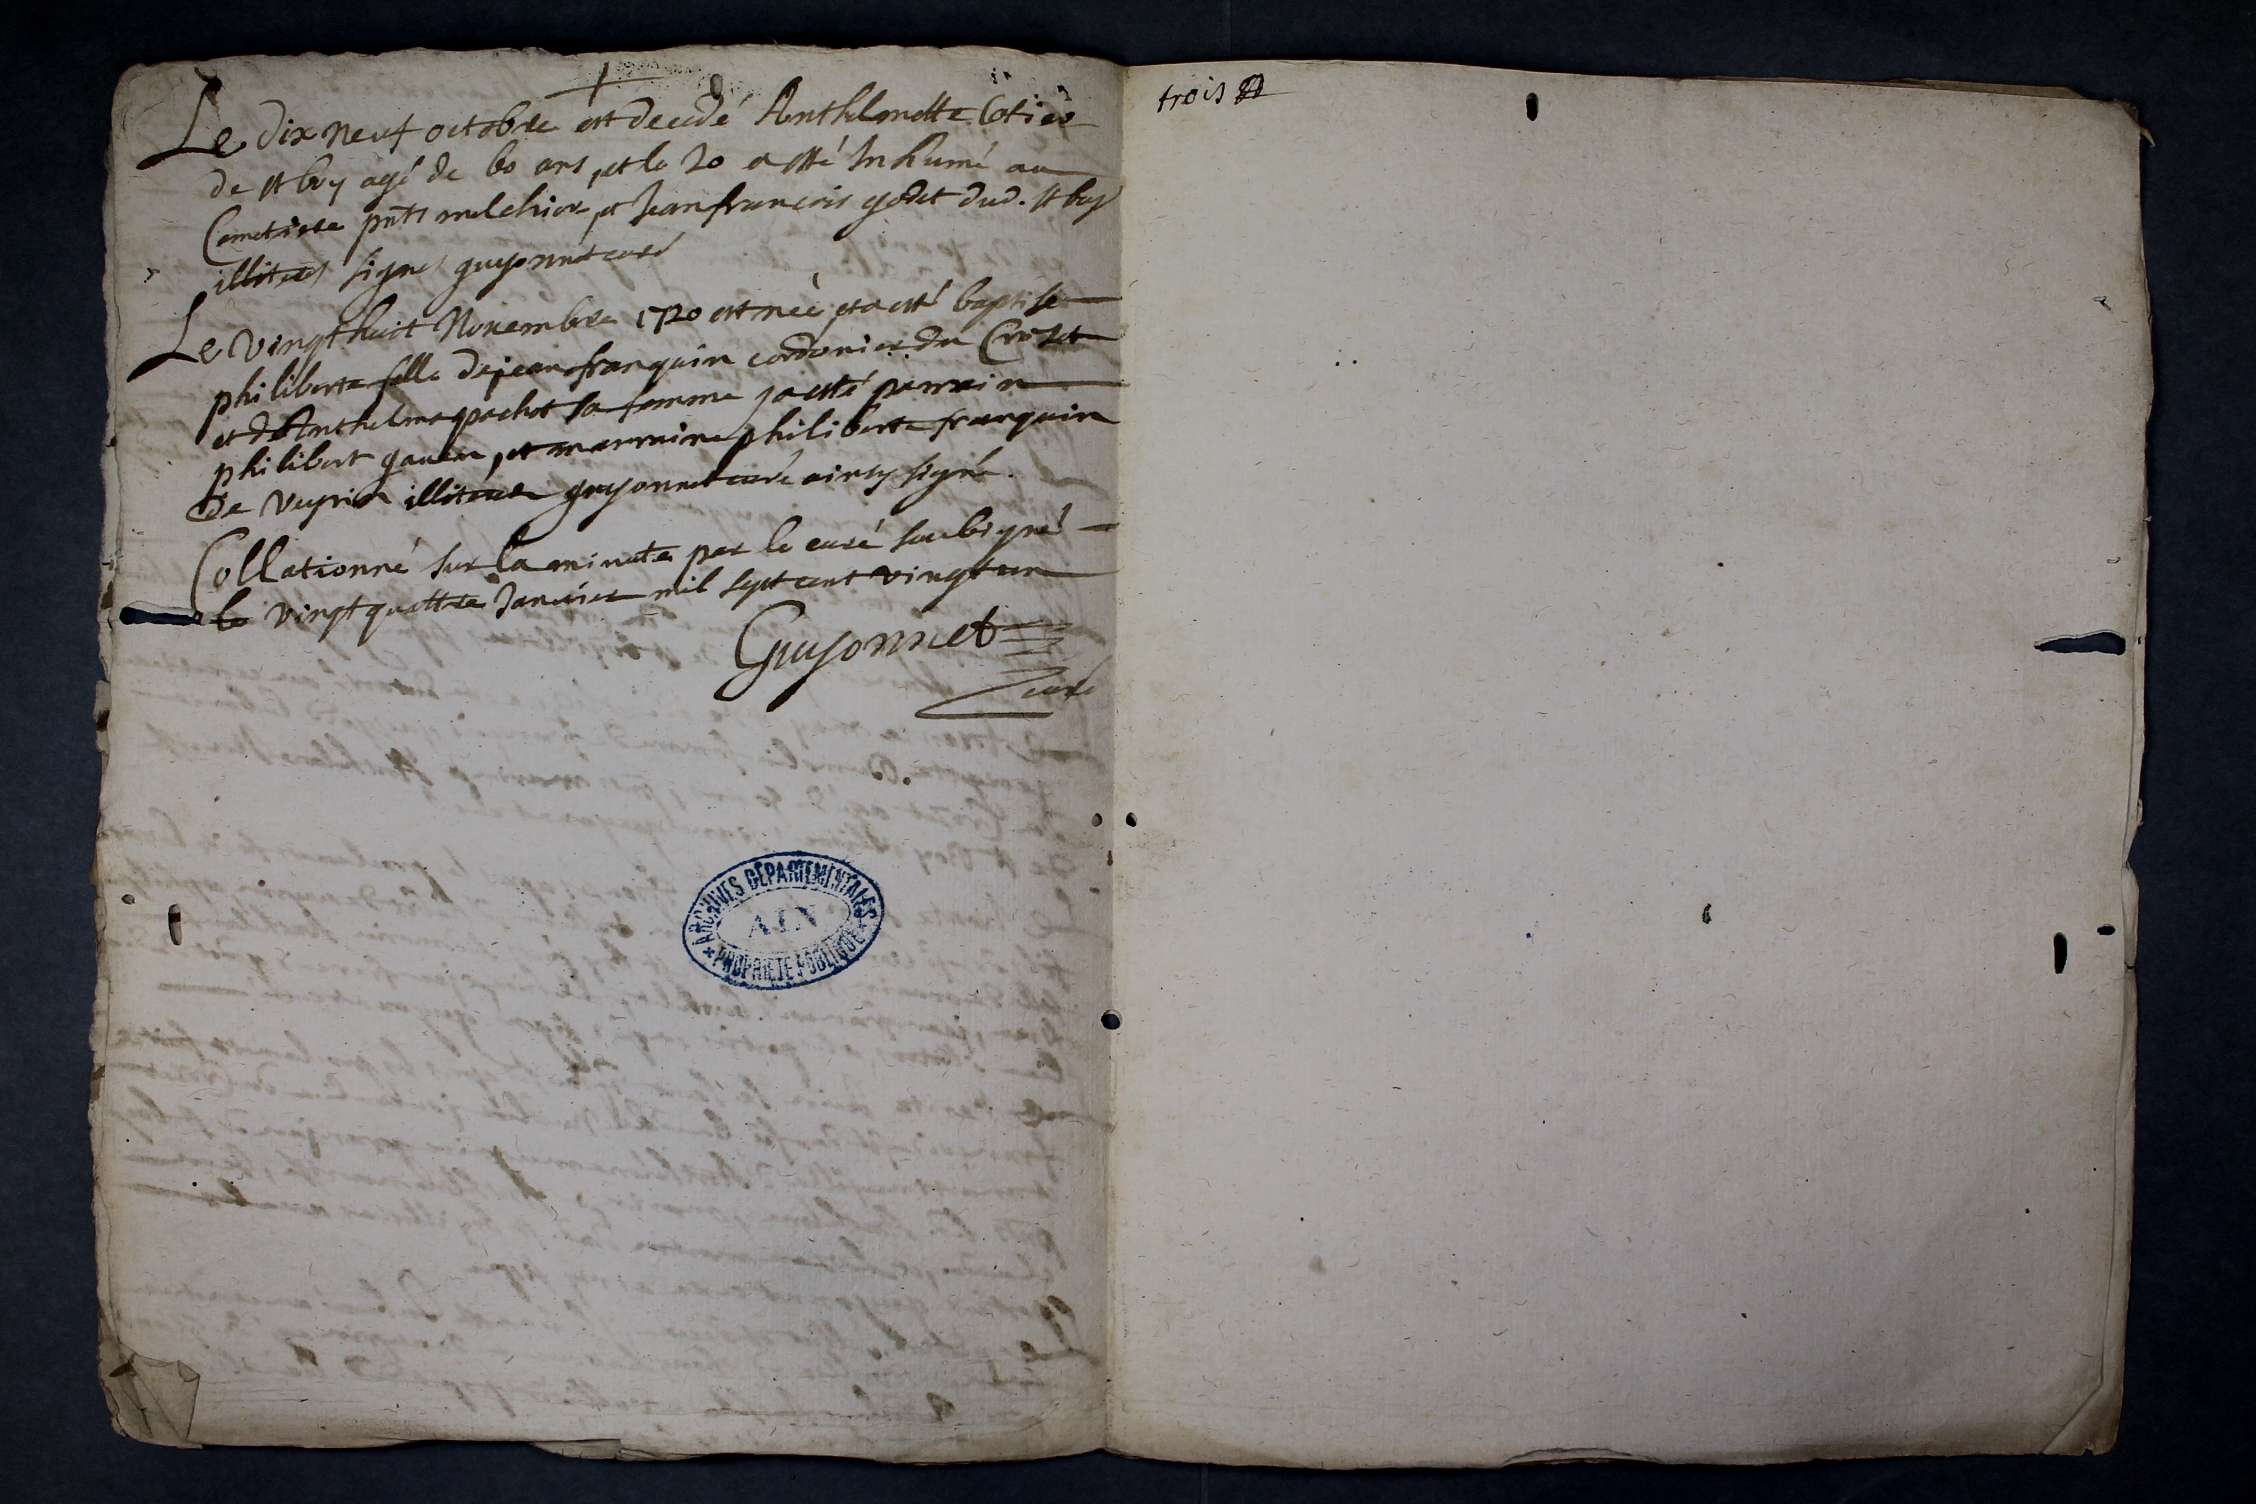 Le dix neuf octobre est decedé Anthelmette Cotier
de st boy agé de 60 ans, et le 20 a etté Inhumé au
Cemetiere pnts melchior, et Jean françois godet dud. st boy
illiteres signes guyonnet curé
Le vingt huit Novembre 1720 est née, et a etté baptisé
philiberte fille de jean franquin cordonier du Croset
et de Anthelme pachot sa femme, a etté parrain
philibert et marraine philiberte franquin
de veyrin illiteres guyonnet curé ainsy signé.
Collationné sur la minute par le curé soubsigné
le vingt quattre Janvier mil sept cent vingt un
Guyonnet
curé
ARCHIVES DÉPARTEMENTALES
AIN
PROPRIÉTÉ PUBLIQUE
trois